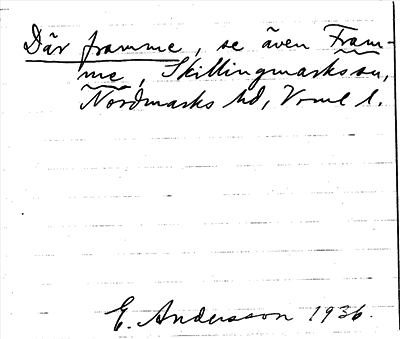 Där framme, se även Fram-
me, Skillingmarks sn,
Nordmarks hd, Vrml l.
E. Andersson 1936.